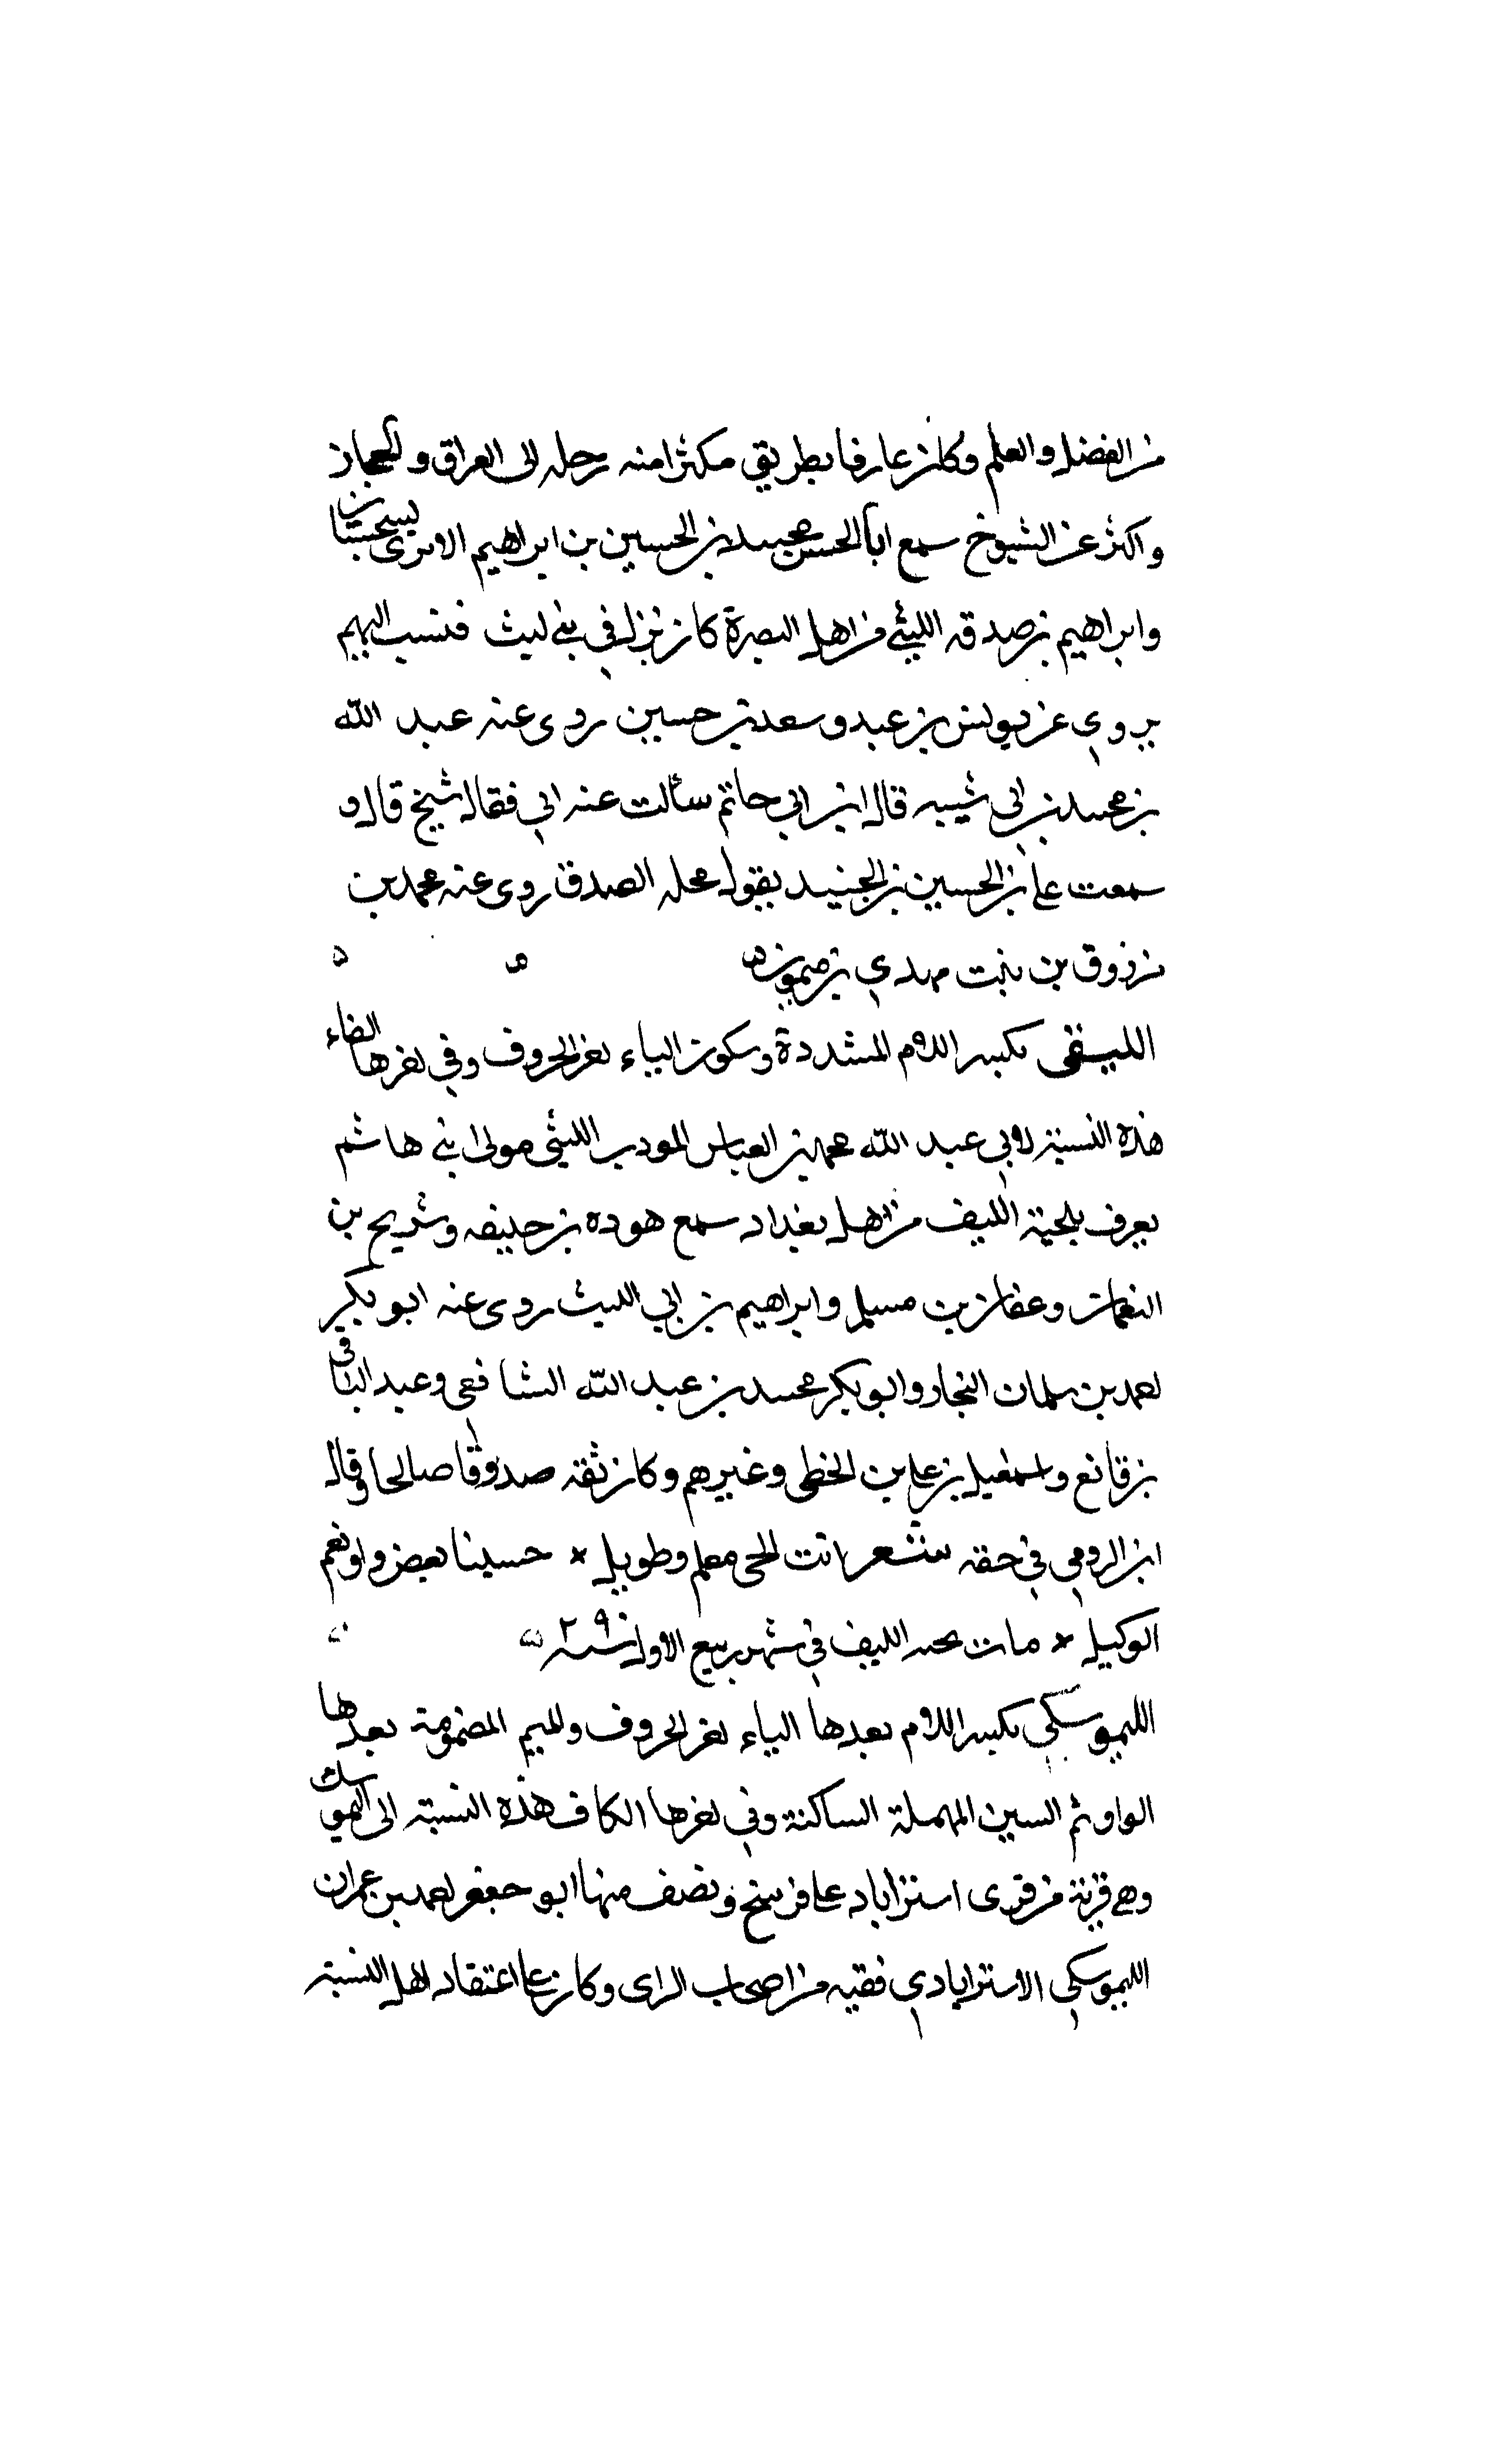 من الفضل والعلم وكان عارفا بطريق مكثرا منه رحل الى العراق والحجاز
واكثر عن الشيوخ سمع ابا الحسن محمد بن الحسين بن ابراهيم الابرى بسجستان
وابراهيم بن صدقه الليثي من اهل البصرة كان ينزل في بني ليث فنسب اليهم
يروي عن يونس بن عبيد وسعد بن حسين روى عنه عبد الله
بن محمد بن ابي شيبه قال ابن ابي حاتم سألت عنه ابي فقال شيخ قال و
سمعت على بن الحسين بن الجنيد يقول محله الصدق روى عنه محمد بن
مرزوق بن بنت مهدي بن ميمون
الليفى بكسر اللام المشددة وسكون الياء اخر الحروف وفي اخرها الفاء
هذه النسبة لابي عبد الله محمد بن العباس المودب الليثي مولى بني هاشم
يعرف بلحية الليف من اهل بغداد سمع هوده بن خليفه وشريح بن
النعمان وعفان بن مسلم وابراهيم بن ابي الليث روى عنه ابو بكر
احمد بن سلمان النجار وابو بكر محمد بن عبد الله الشافعى وعبد الباقى
بن قانع واسمعيل بن علي بن الخطى وغيرهم وكان ثقه صدوقا صالحا وقال
ابن الرومي في حقه شعر انت الحى معلم وطويل * حسبنا بعض ولو نعم
الوكيل * مات الليف في شهر ربيع الاول سنة ٢٩٠
الليموسكي بكسر اللام بعدها الياء اخر الحروف والميم المضمومة بعدها
الواو ثم السين المهملة الساكنة وفي اخرها الكاف هذه النسبة الى ليموسك
وهي قرية من قرى استراباد على فرسخ ونصف منها ابو جعفر احمد بن عمران
الليموسكي الاستراباذي فقيه من اصحاب الراى وكان على اعتقاد اهل السنة